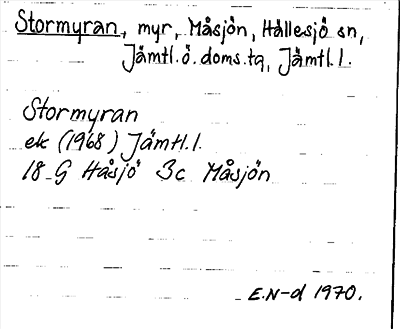 Stormyran, myr, Måsjön, Hällesjö sn,
Jämtl.ö.doms.tg, Jämtl.l.
Stormyran
ek (1968) Jämtl.l.
18 G Håsjö 3c Måsjön
E.N-d 1970.